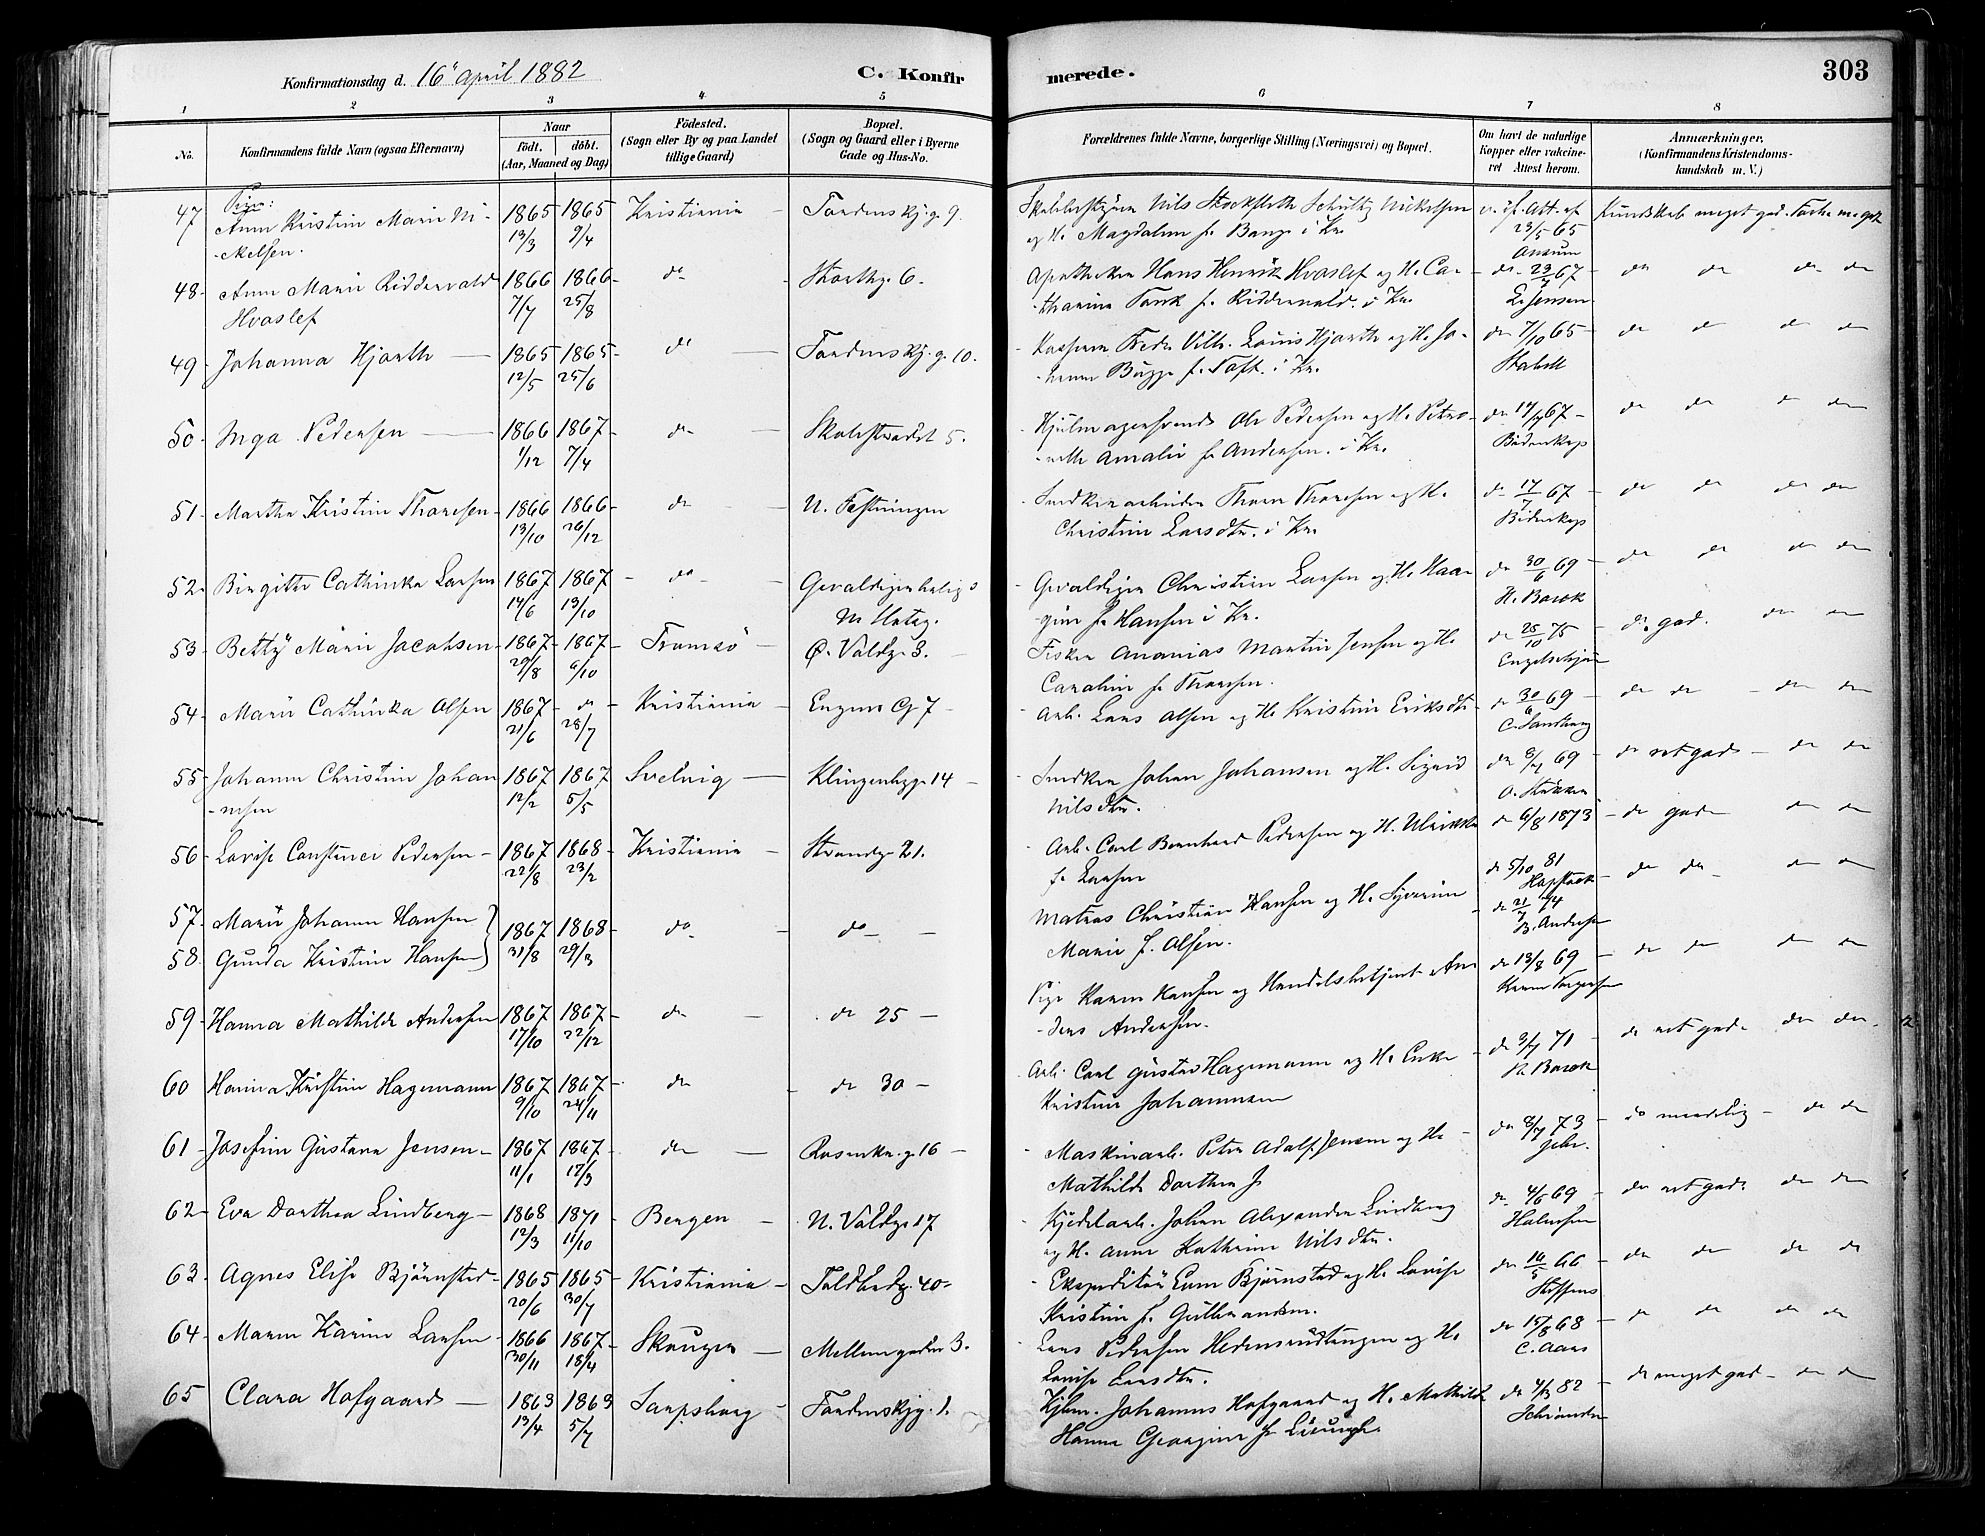 Konfirmationsdag d. 16 April 1882
C. Konfir
merede.
303
1 2 3 4 5 6 7 8
No.
Konfirmandens fulde Navn (ogsaa Efternavn)
Naar
födt. döbt.
(Aar, Maaned og Dag)
Födested.
(Sogn eller By og paa Landet
tillige Gaard)
Bopæl.
(Sogn og Gaard eller i Byerne
Gade og Hus-No.
Forældrenes fulde Navne, borgerlige Stilling (Næringsvei) og Bopæl.
Om havt de naturlige
Kopper eller vakcine-
ret Attest herom.
Anmærkninger.
(Konfirmandens Kristendoms-
kundskab m. V.)
Piger:
47 Anna Kristine Marie Ni- 1865 1865 Kristiania - Tordenskj.g. 9.
kelsen. 13/3 9/4
og H. Magdalena f. Bange i Kr.
23/5 65
Kundskab meget god.
48 Anna Marie Riddervold 1866 1866 do Storthg. 6.
Hvoslef 7/7 25/8
Apotheker Hans Henrik Hvoslef og H. Ca-
tharina Tank f. Riddervold. i Kr.
do 23/7 67 do do do do
L. Jensen
49 Johanna Hjorth 1865 1865 do Tordenskj.g. 10.
12/5 25/6
Fredr. Vilh. Louis Hjorth og H. Jo-
hanne Bugge f. Toft. i Kr.
do 7/10 65 do do do do
50 Inga Pedersen 1866 1867 do Skolestrædet 5.
1/12 7/4
Hjulmagersvend Ole Pedersen og H. Petro-
nelle Amalie f. Andersen. i Kr.
do 14/7 67 do do do do
Bidenkap
51 Martha Kristine Thoresen 1866 1866 do N. Fæstningen
13/10 26/12
Snedkerarbeider Thore Thoresen og H.
Christine Larsdtr. i Kr.
do 17/7 67 do do do do
Bidenkap
52 Birgitte Cathinka Larsen 1867 1867 do
14/6 13/10
Gevaldiger Christian Larsen og H. Haa-
gine f. Hansen i Kr.
do 30/6 69 do do do do
53 Betty Marie Jacobsen 1867 1867 Tromsö Ø. Voldg. 3.
29/8 6/10
Fisker Ananias Martin Jensen og H.
Caroline f. Thoresen.
do 25/10 75 do god. do do
54 Marie Cathinka Olsen 1867 do Kristiania 7
21/6 28/7
Arb. Lars Olsen og H. Kristine Eriksdtr
do 30/6 69 do do do do
55 Johanne Christine Johan 1867 1867 Svelvig Klingenbgg. 14
nesen 12/2 5/5
Snedker Johan Johansen og H. Sigrid
Nilsdtr.
69 do ret god do do
56 Lovise Constance Pedersen 1867 1868 Kristiania Strandg. 21.
22/8 23/2
Arb. Carl Bernhard Pedersen og H. Ulrikke
f. Larsen
do 6/8 1873 do god do do
57 Marie Johanne Hansen
58 Gunda Kristine Hansen
1867 1868 do do
31/8 29/3
Matros Christian Hansen og H. Syverine
Marie f. Olsen.
do 5/10 81 do do do do
do 21/7 74
B. Andersen
59 Hanna Mathilde Andersen 1867 1867 do do 25
17/10 22/12
Pige Karen Hansen og Handelsbetjent An-
ders Andersen.
do 13/8 69 do do do do
60 Hanna Kristine Hagemann 1867 1867 do do 30
9/10 24/11
Arb. Carl Gustav Hagemann og H.
Kristine Johannesen
71 do ret god. do do
61 Josefine Gustava Jensen 1867 1867 do Rosenkr.g. 16
11/1 17/3
Maskinarb. Peter Adolf Jensen og H.
Mathilde Dorthea f.
73 do maadelig do do
62 Eva Dorthea Lindberg 1868 1871 Bergen N. Voldg. 17
12/3 11/10
Kjedelarb. Johan Alexander Lindberg
og H. Anne Kathrine Nilsdtr.
do 4/6 69 do ret god. do do
Halvorsen
63 Agnes Elise Björnstad 1865 1865 Kristiania Toldbodg. 40
20/6 30/7
Ekspeditör Even Björnstad og H. Lovise
Kristine f. Gulbrandsen.
66 do do do do
Steffens
64 Maren Karine Larsen 1866 1867 Skouger Mellemgaden 3.
30/11 18/4
Lars Pedersen og H.
Lovise Larsdtr.
do 15/8 68 do do do do
C. Aars
65 Clara Hofgaard 1863 1863 Sarpsborg Tordenskj.g. 1.
13/4 5/7
Kjbm. Johannes Hofgaard og H. Mathilde
Hanna Georgine f.
82 do meget god do do